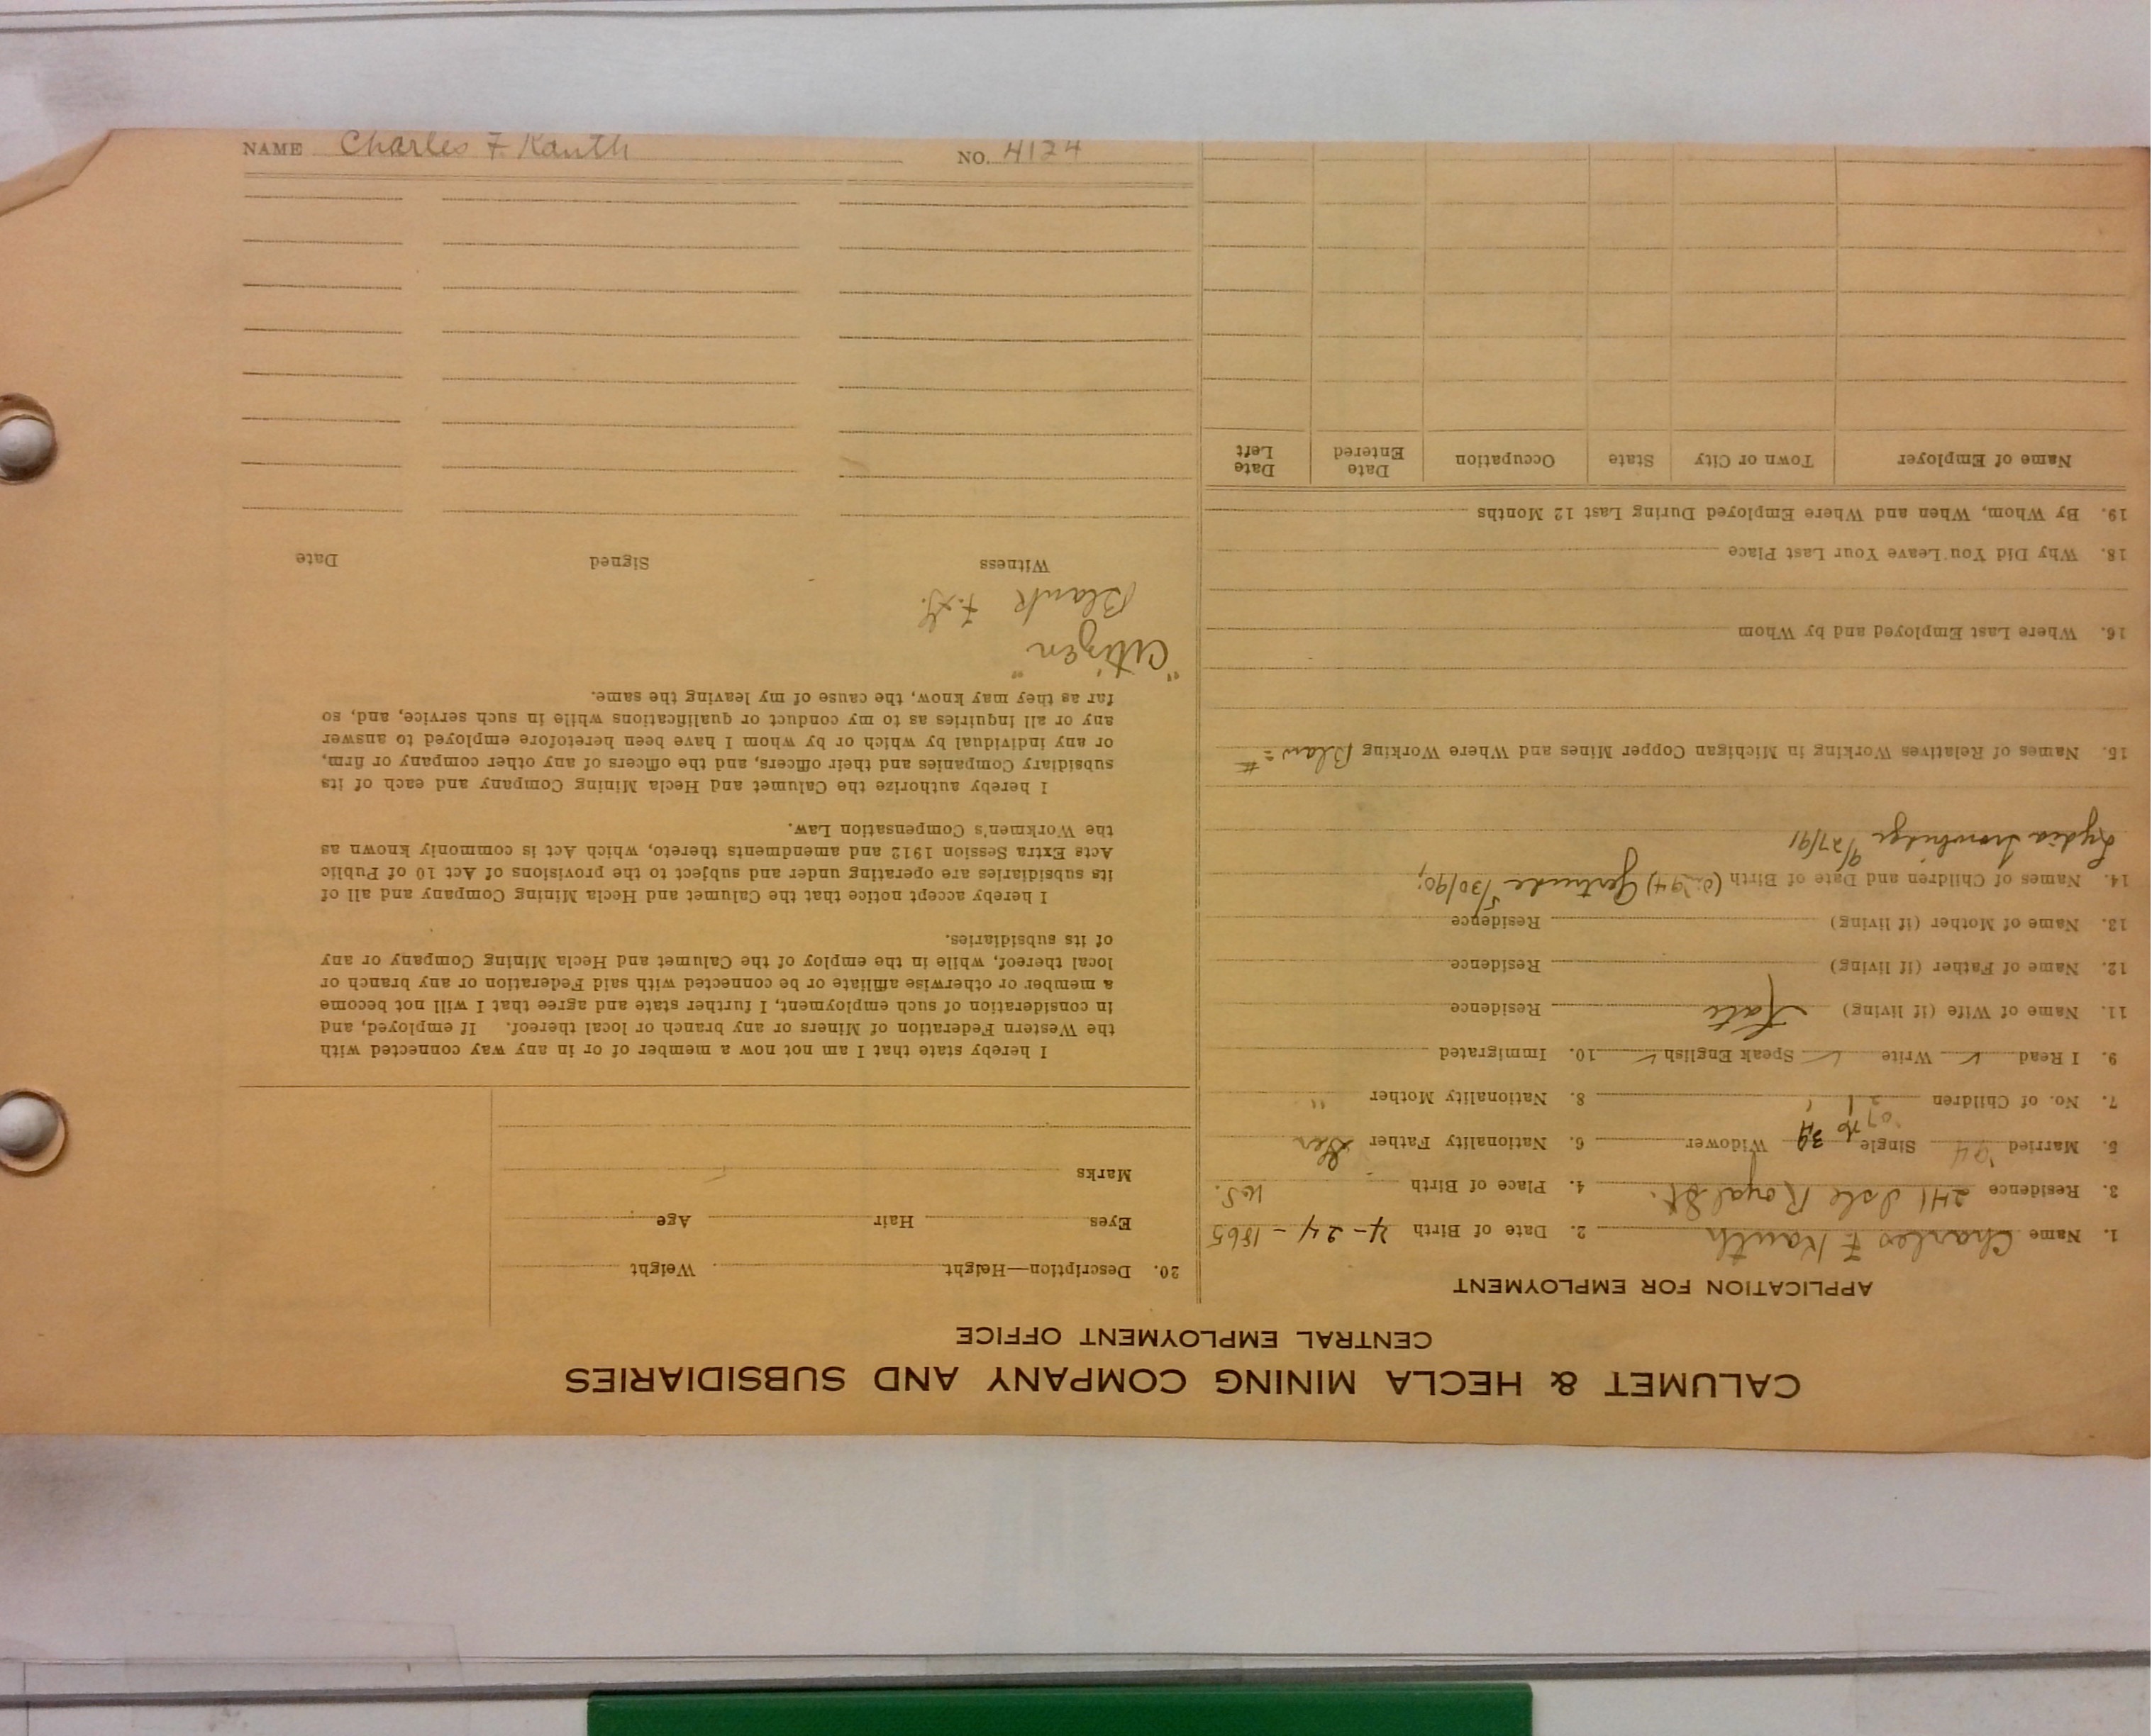 CALUMET & HECLA MINING COMPANY AND SUBSIDIARIES
CENTRAL EMPLOYMENT OFFICE
APPLICATION FOR EMPLOYMENT
1. Name Charles F Kauth 2. Date of Birth 4-24-1865
3. Residence 241 Isle Royal St. 4. Place of Birth U.S.
5. Married '94 Single Widower 6. Nationality Father Ger
7. No. of Children 2 8. Nationality Mother "
9. I Read ✓ Write ✓ Speak English ✓ 10. Immigrated
11. Name of Wife (if living) Kate Residence
12. Name of Father (if living) Residence
13. Name of Mother (if living) Residence
14. Names of Children and Date of Birth Gertrude 5/30/90;
Lydia Trowbridge 9/27/91
15. Names of Relatives Working in Michigan Copper Mines and Where Working
16. Where Last Employed and by Whom
18. Why Did You Leave Your Last Place
19. By Whom, When and Where Employed During Last 12 Months
Name of Employer Town or City State Occupation Date Entered Date Left
20. Description—Height Weight
Eyes Hair Age
Marks
I hereby state that I am not now a member of or in any way connected with
the Western Federation of Miners or any branch or local thereof. If employed, and
in consideration of such employment, I further state and agree that I will not become
a member or otherwise affiliate or be connected with said Federation or any branch or
local thereof, while in the employ of the Calumet and Hecla Mining Company or any
of its subsidiaries.
I hereby accept notice that the Calumet and Hecla Mining Company and all of
its subsidiaries are operating under and subject to the provisions of Act 10 of Public
Acts Extra Session 1912 and amendments thereto, which Act is commonly known as
the Workmen's Compensation Law.
I hereby authorize the Calumet and Hecla Mining Company and each of its
subsidiary Companies and their officers, and the officers of any other company or firm,
or any individual by which or by whom I have been heretofore employed to answer
any or all inquiries as to my conduct or qualifications while in such service, and, so
far as they may know, the cause of my leaving the same.
"Citizen"
Blank
Witness Signed Date
NAME Charles F Kauth NO. 4124